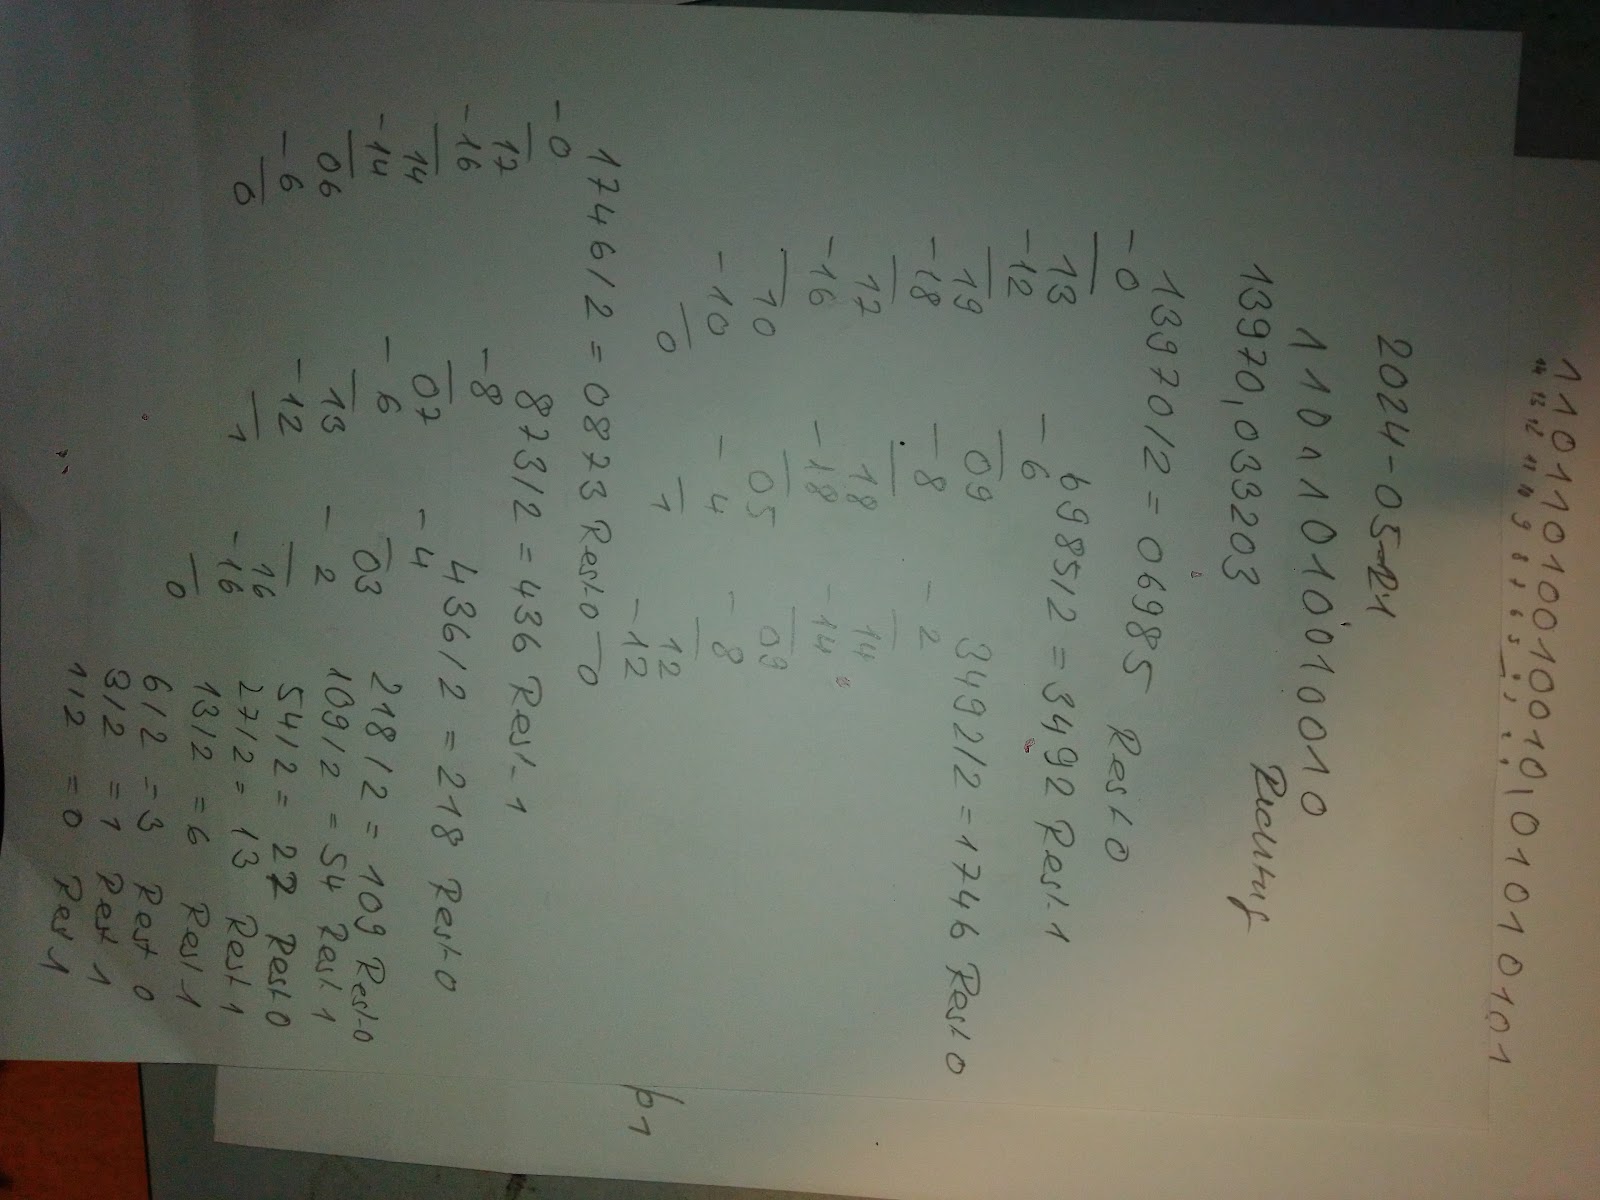 2024-05-21
11011010010010
13970,033203
13970/2 = 06985 Rest 0
-0
13 6985/2 = 3492 Rest 1
-12 -6
19 09 3492/2 = 1746 Rest 0
-18 -8 -2
17 18 14
-16 -18 -14
10 05 09
-10 -4 -8
0 1 12
-12
0
1746/2 = 0873 Rest 0
-0
17 873/2 = 436 Rest 1
-16 -8
14 07 436/2 = 218 Rest 0
-14 -6 -4
06 13 03 218/2 = 109 Rest 0
-6 -12 -2 109/2 = 54 Rest 1
0 1 16 54/2 = 27 Rest 0
-16 27/2 = 13 Rest 1
0 13/2 = 6 Rest 1
6/2 = 3 Rest 0
3/2 = 1 Rest 1
1/2 = 0 Rest 1